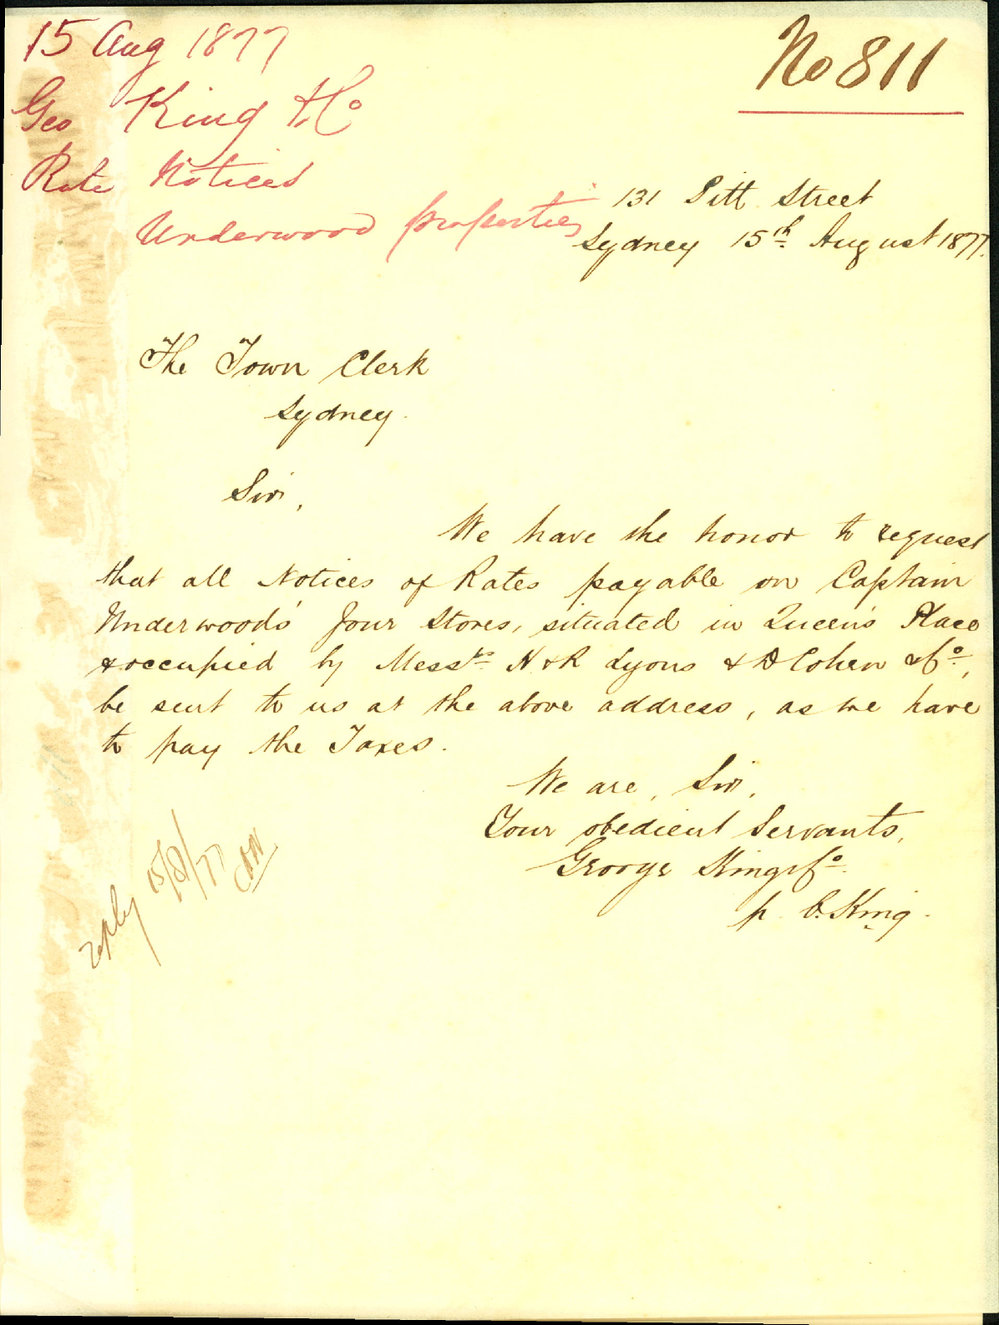 15 Aug 1877
Geo King & Co
Rate Notices
Underwood properties
No 811
131 Pitt Street
Sydney 15th August 1877.
The Town Clerk
Sydney.
Sir,
We have the honor to request
that all Notices of Rates payable on Captain
Underwood's four Stores, situated in Queen's Place
& occupied by Messrs H & R Lyons & D Cohen & Co,
be sent to us at the above address, as we have
to pay the Taxes.
We are, Sir,
Your obedient Servants,
George King & Co.
p. C. King.
reply 15/8/77